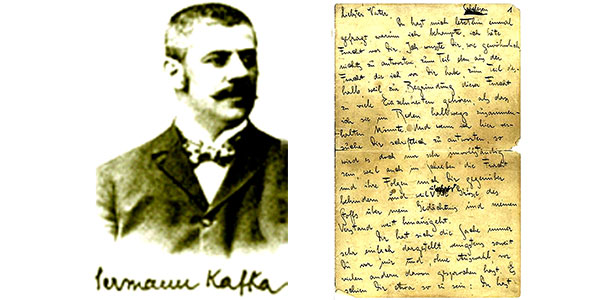 Hermann Kafka
1
Liebster Vater,
Du hast mich letzthin einmal
gefragt, warum ich behaupte, ich hätte
Furcht vor Dir. Ich wusste Dir, wie gewöhnlich,
nichts zu antworten, zum Teil eben aus der
Furcht, die ich vor Dir habe, zum Teil des-
halb weil zur Begründung dieser Furcht
zu viele Einzelheiten gehören, als dass
ich sie im Reden halbwegs zusammen-
halten könnte. Und wenn ich hier ver-
suche Dir schriftlich zu antworten, so
wird es doch nur sehr unvollständig
sein, weil auch im Schreiben die Furcht
und ihre Folgen mich Dir gegenüber
behindern und weil die Grösse des
Stoffs über mein Gedächtnis und meinen
Verstand weit hinausgeht.
Dir hat sich die Sache immer
sehr einfach dargestellt, wenigstens soweit
Du vor mir und, ohne Auswahl, vor
vielen andern davon gesprochen hast. Es
schien Dir etwa so zu sein: Du hast